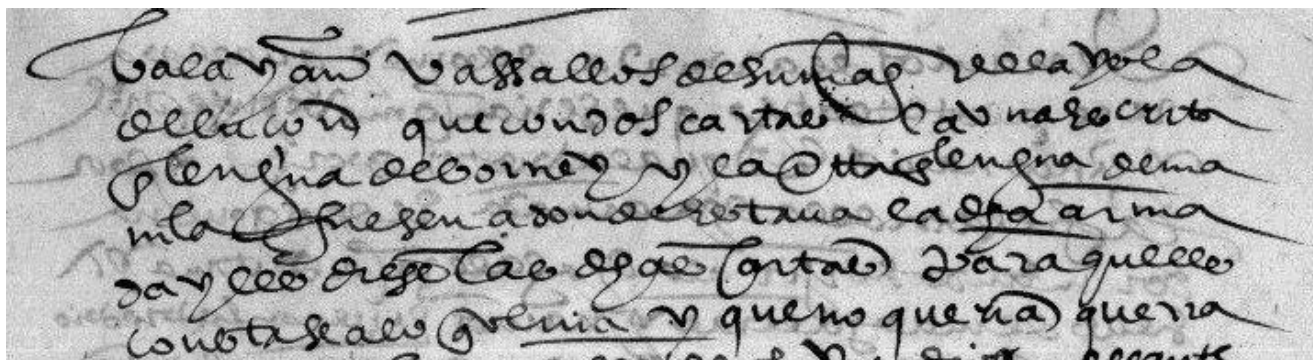 balayan vassallos de su mag de la ysla
de luçon que con dos cartas la una escrita
en lengua de borney y la otra en lengua de ma
nila fuesen a donde estava la dha arma
da y les diesen las dhas cartas para que les
constase a lo que venia y que no queria guerra